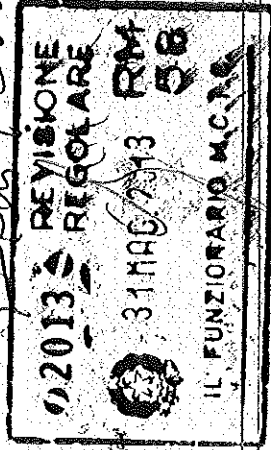 2013 REVISIONE
REGOLARE
31 MAG. 2013 RM
58
IL FUNZIONARIO M.C.T.C.